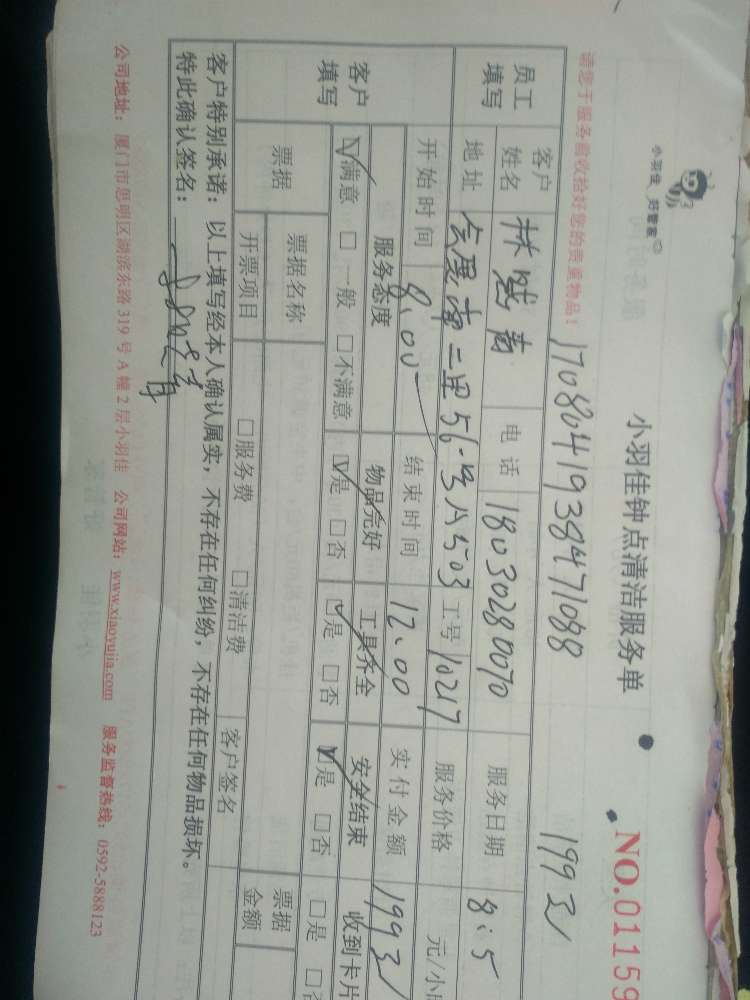 小羽佳 好管家
小羽佳钟点清洁服务单
NO.01159
请您于服务前收拾好您的贵重物品！
17080419384711088
199元
员工填写 客户姓名 林 电话 18030280070 服务日期 8.5
地址 二里56号A503 工号 10217 服务价格 元/小
开始时间 8:00 结束时间 12:00 实付金额 199元
客户填写 服务态度 物品完好 工具齐全 安全结束 收到卡片
☑满意 □一般 □不满意 ☑是 □否 ☑是 □否 ☑是 □否 □是
票据 票据名称 票据金额
开票项目 □服务费 □清洁费 客户签名
客户特别承诺：以上填写经本人确认属实，不存在任何纠纷，不存在任何物品损坏。
特此确认签名：
公司地址：厦门市思明区湖滨东路319号A幢2层小羽佳 公司网站：www.xiaoyujia.com 服务监督热线：0592-5888123